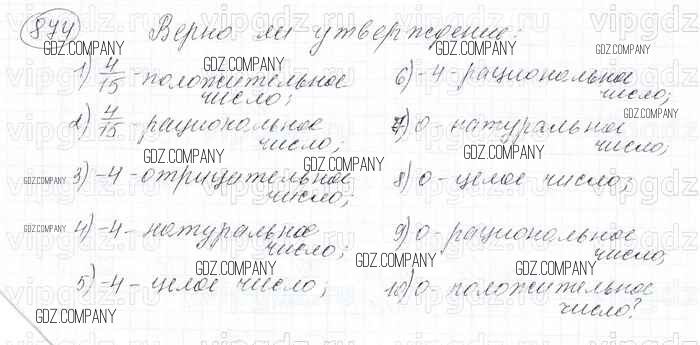 874 Верно ли утверждение:
1) 4/15 - положительное
число;
2) 4/15 - рациональное
число;
3) -4 - отрицательное
число;
4) -4 - натуральное
число;
5) -4 - целое число;
6) -4 - рациональное
число;
7) 0 - натуральное
число;
8) 0 - целое число;
9) 0 - рациональное
число;
10) 0 - положительное
число?
GDZ.COMPANY
vipgdz.ru